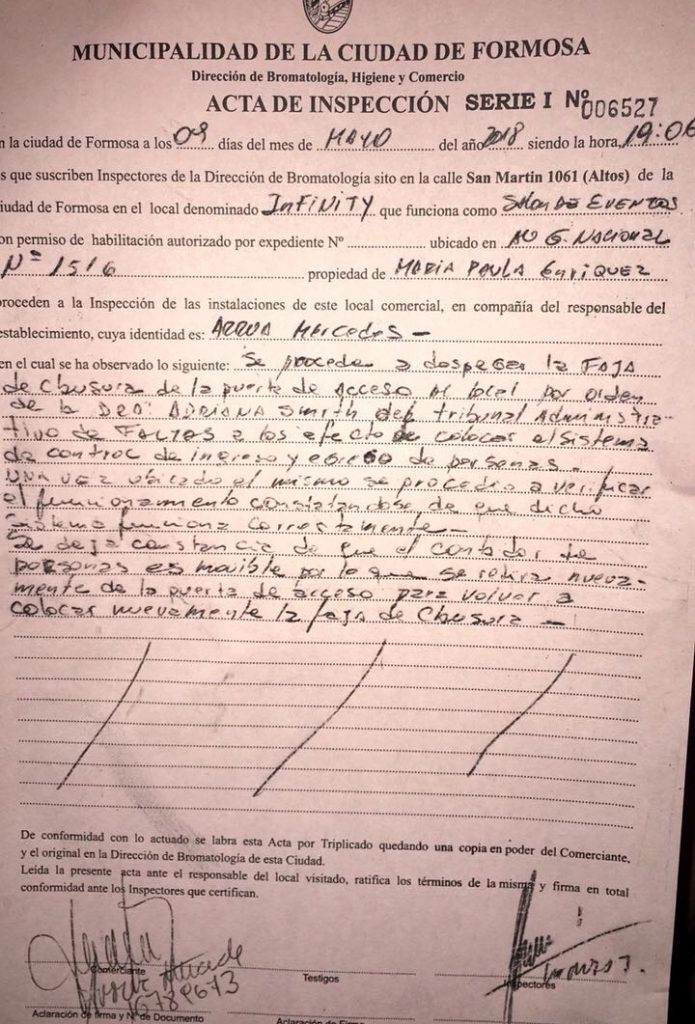 MUNICIPALIDAD DE LA CIUDAD DE FORMOSA
Dirección de Bromatología, Higiene y Comercio
ACTA DE INSPECCIÓN SERIE I Nº 006527
n la ciudad de Formosa a los 09 días del mes de MAYO del año 2018 siendo la hora, 19:06
s que suscriben Inspectores de la Dirección de Bromatología sito en la calle San Martin 1061 (Altos) de la
iudad de Formosa en el local denominado InFINITY que funciona como Salon De Eventos
on permiso de habilitación autorizado por expediente Nº ubicado en AV G. NACIONAL
Nº 1516 propiedad de MARIA PAULA EnRIQUEZ
proceden a la Inspección de las instalaciones de este local comercial, en compañía del responsable del
establecimiento, cuya identidad es: ARRUA Mercedes -
en el cual se ha observado lo siguiente: Se procede a despegar la FAJA
de Clausura de la puerta de Acceso Al local por orden
de la DRA: ADRIANA Smith del tribunal Administra-
tivo de FALTAS a los efecto de colocar el sistema
de control de ingreso y egreso de personas.-
UNA vez ubicado el mismo se procedio a verificar
el funcionamiento constatandose de que dicho
sistema funciona correctamente -
Se deja constancia de que el contador de
personas es movible por lo que se retira nueva-
mente de la puerta de acceso para volver a
colocar nuevamente la faja de Clausura -
De conformidad con lo actuado se labra esta Acta por Triplicado quedando una copia en poder del Comerciante,
y el original en la Dirección de Bromatología de esta Ciudad.
Leída la presente acta ante el responsable del local visitado, ratifica los términos de la misma y firma en total
conformidad ante los Inspectores que certifican.
Comerciante Testigos Inspectores
16789673
Aclaración de firma y Nº de Documento Aclaración de Firma